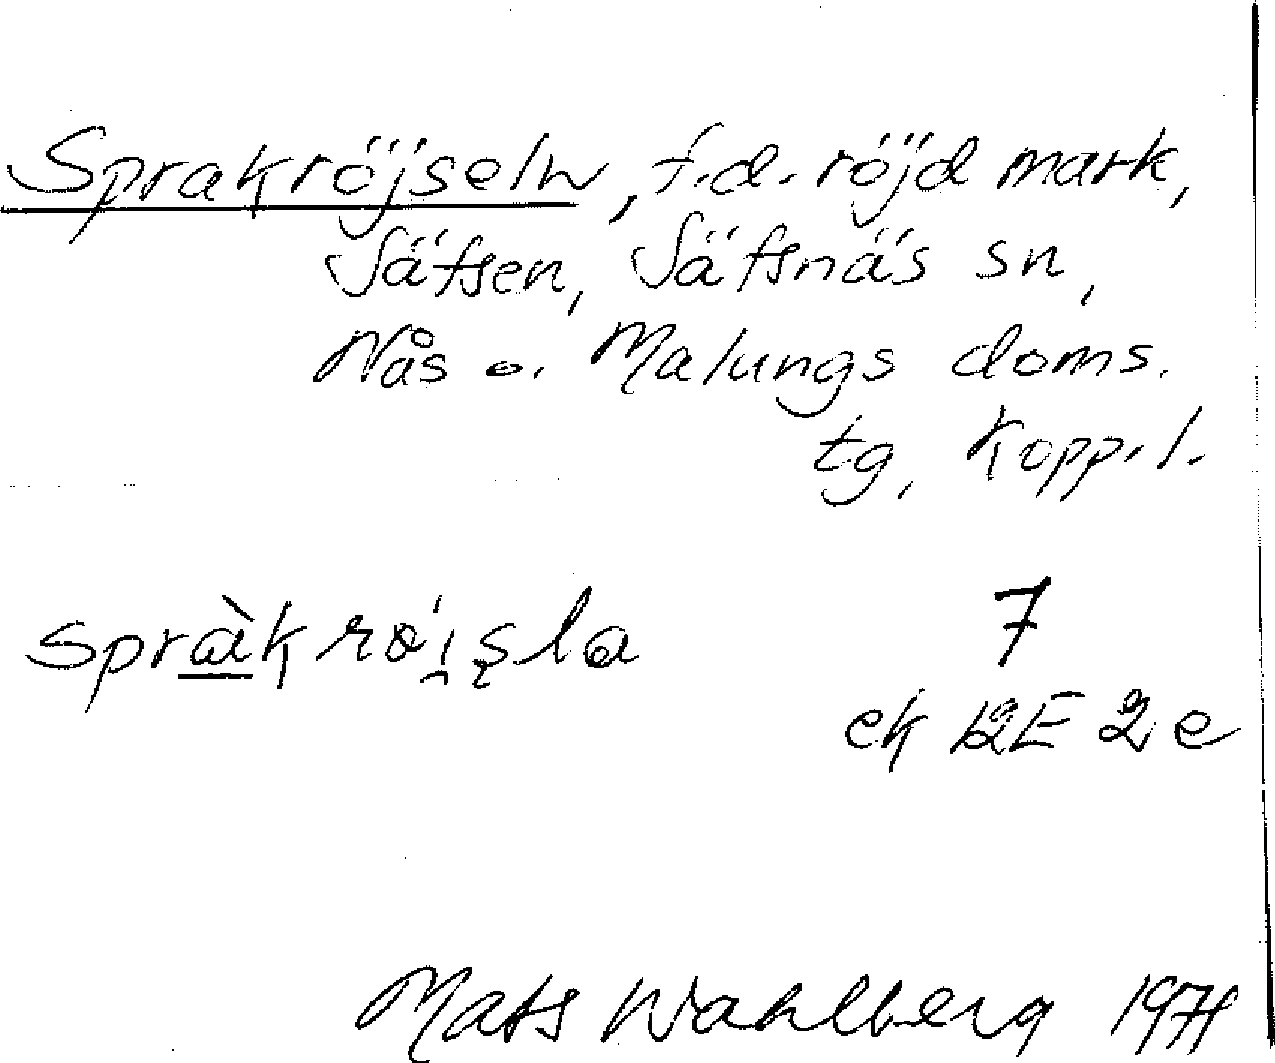 Sprakröjseln, f.d. röjd mark,
Säfsen, Säfsnäs sn,
Nås o. Malungs doms.
tg, Kopp. l.
språkröisla
7
ek 12E 2e
Mats Wahlberg 1971